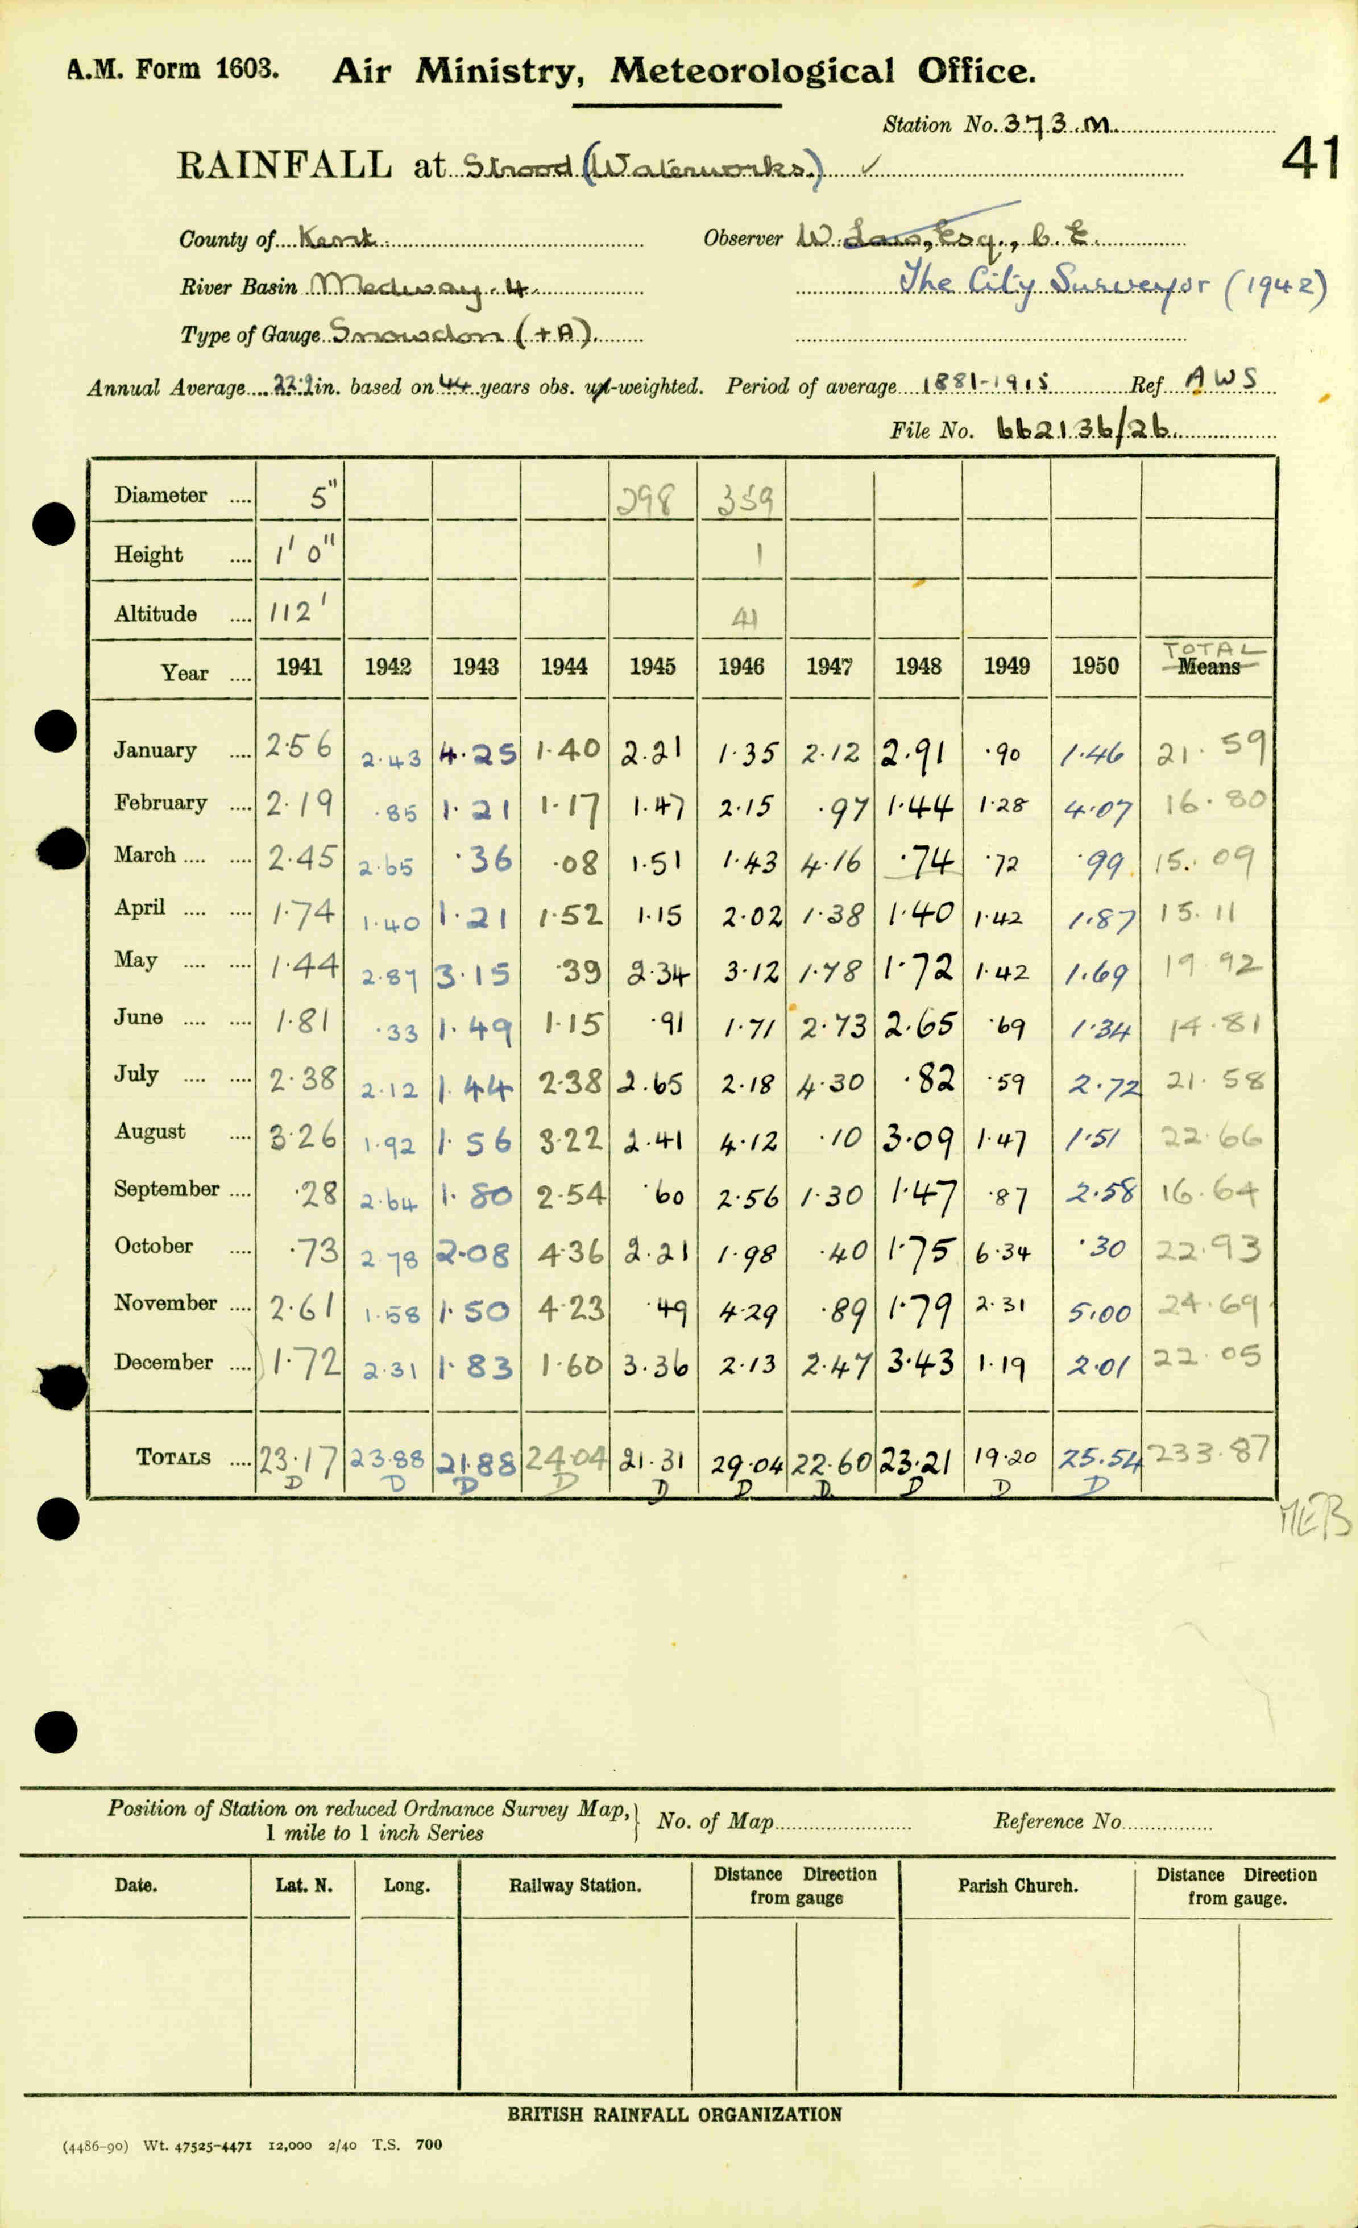 A.M. Form 1603. Air Ministry, Meteorological Office.
Station No. 373.M.
41
RAINFALL at Strood (Waterworks.) ✓
County of Kent. Observer W. Law, Esq., C. E.
River Basin Medway. 4. The City Surveyor (1942)
Type of Gauge Snowdon (+A).
Annual Average 22.9 in. based on 44 years obs. weighted. Period of average 1881-1915 Ref. AWS
File No. 662136/26.
Diameter .... 5" 298 359
Height .... 1' 0" 1
Altitude .... 112' 41
TOTAL
Year .... 1941 1942 1943 1944 1945 1946 1947 1948 1949 1950 Means
January .... 2.56 2.43 4.25 1.40 2.21 1.35 2.12 2.91 .90 1.46 21.59
February .... 2.19 .85 1.21 1.17 1.47 2.15 .97 1.44 1.28 4.07 16.80
March .... .... 2.45 2.65 .36 .08 1.51 1.43 4.16 .74 .72 .99 15.09
April .... .... 1.74 1.40 1.21 1.52 1.15 2.02 1.38 1.40 1.42 1.87 15.11
May .... .... 1.44 2.87 3.15 .39 2.34 3.12 1.78 1.72 1.42 1.69 19.92
June .... .... 1.81 .33 1.49 1.15 .91 1.71 2.73 2.65 .69 1.34 14.81
July .... .... 2.38 2.12 1.44 2.38 2.65 2.18 4.30 .82 .59 2.72 21.58
August .... 3.26 1.92 1.56 3.22 2.41 4.12 .10 3.09 1.47 1.51 22.66
September .... .28 2.64 1.80 2.54 .60 2.56 1.30 1.47 .87 2.58 16.64
October .... .73 2.78 2.08 4.36 2.21 1.98 .40 1.75 6.34 .30 22.93
November .... 2.61 1.58 1.50 4.23 .49 4.29 .89 1.79 2.31 5.00 24.69
December .... 1.72 2.31 1.83 1.60 3.36 2.13 2.47 3.43 1.19 2.01 22.05
TOTALS .... 23.17 23.88 21.88 24.04 21.31 29.04 22.60 23.21 19.20 25.54 233.87
D D D D D D D D D D
MEB
Position of Station on reduced Ordnance Survey Map, No. of Map Reference No.
1 mile to 1 inch Series
Date. Lat. N. Long. Railway Station. Distance Direction from gauge Parish Church. Distance Direction from gauge.
BRITISH RAINFALL ORGANIZATION
(4486-90) Wt. 47525-4471 12,000 2/40 T.S. 700